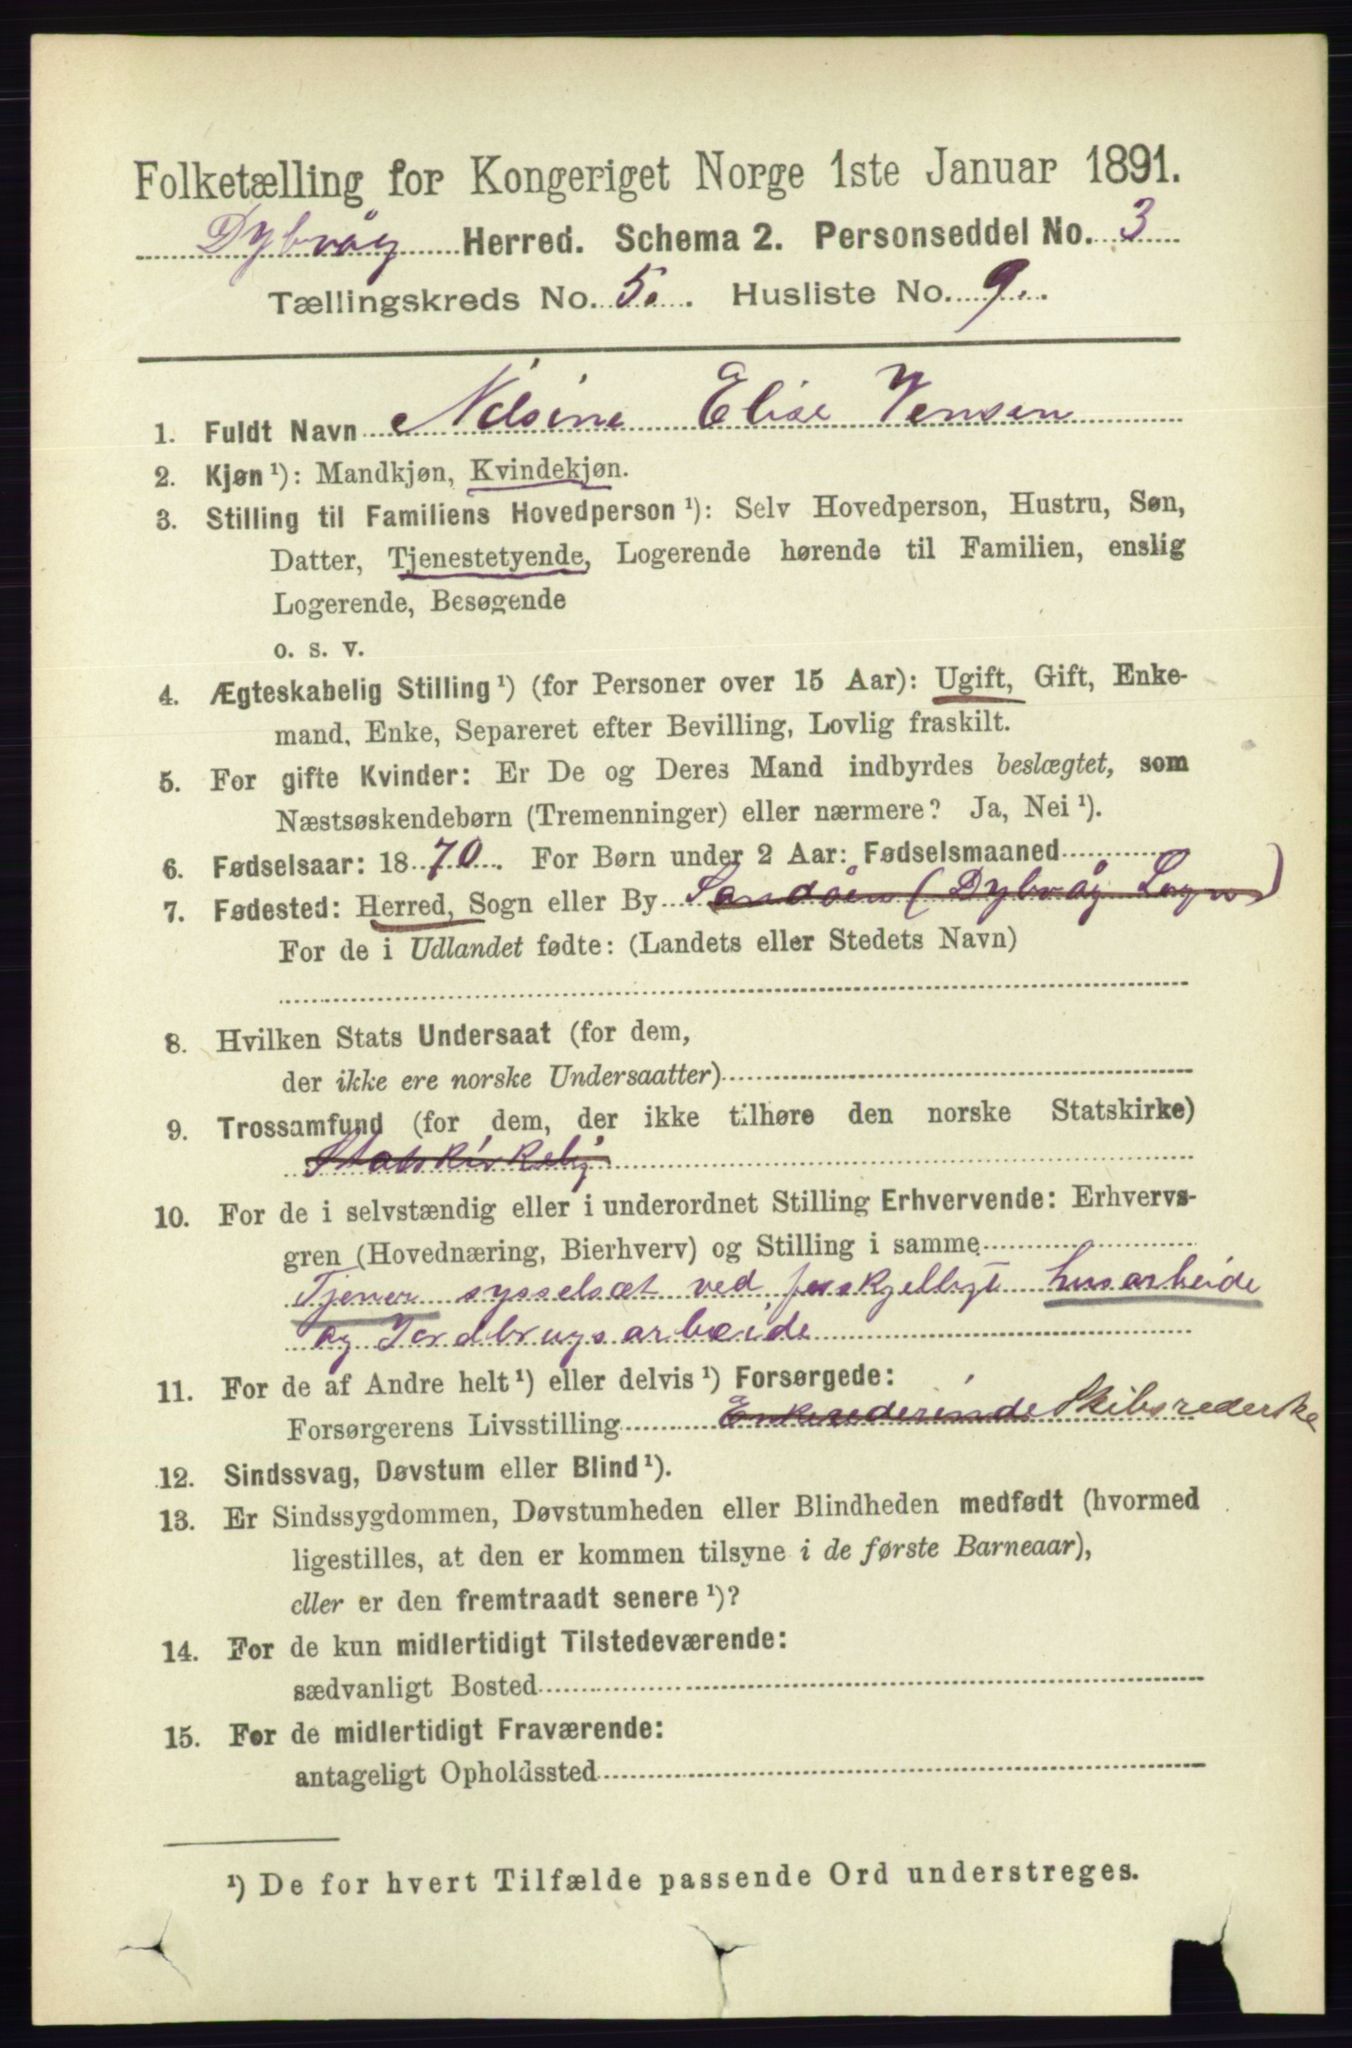 Folketælling for Kongeriget Norge 1ste Januar 1891.
Dybvåg Herred. Schema 2. Personseddel No. 3
Tællingskreds No. 5. Husliste No. 9.
1. Fuldt Navn Nilsine Elise Jensen
2. Kjøn ¹): Mandkjøn, Kvindekjøn.
3. Stilling til Familiens Hovedperson ¹): Selv Hovedperson, Hustru, Søn,
Datter, Tjenestetyende, Logerende hørende til Familien, enslig
Logerende, Besøgende
o. s. v.
4. Ægteskabelig Stilling ¹) (for Personer over 15 Aar): Ugift, Gift, Enke-
mand, Enke, Separeret efter Bevilling, Lovlig fraskilt.
5. For gifte Kvinder: Er De og Deres Mand indbyrdes beslægtet, som
Næstsøskendebørn (Tremenninger) eller nærmere? Ja, Nei ¹).
6. Fødselsaar: 1870. For Børn under 2 Aar: Fødselsmaaned
7. Fødested: Herred, Sogn eller By Sandøen (Dybvåg Sogn)
For de i Udlandet fødte: (Landets eller Stedets Navn)
8. Hvilken Stats Undersaat (for dem,
der ikke ere norske Undersaatter)
9. Trossamfund (for dem, der ikke tilhøre den norske Statskirke)
Statskirkelig
10. For de i selvstændig eller i underordnet Stilling Erhvervende: Erhvervs-
gren (Hovednæring, Bierhverv) og Stilling i samme
Tjener sysselsat ved forskjelligt husarbeide
og Jordbrugsarbeide
11. For de af Andre helt ¹) eller delvis ¹) Forsørgede:
Forsørgerens Livsstilling Enkerederinde Skibsrederske
12. Sindssvag, Døvstum eller Blind ¹).
13. Er Sindssygdommen, Døvstumheden eller Blindheden medfødt (hvormed
ligestilles, at den er kommen tilsyne i de første Barneaar),
eller er den fremtraadt senere ¹)?
14. For de kun midlertidigt Tilstedeværende:
sædvanligt Bosted
15. For de midlertidigt Fraværende:
antageligt Opholdssted
¹) De for hvert Tilfælde passende Ord understreges.